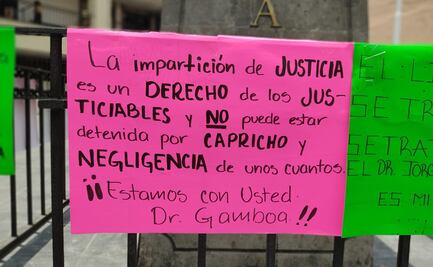 A
La impartición de JUSTICIA
es un DERECHO de los JUS-
TICIABLES y NO puede estar
detenida por CAPRICHO y
NEGLIGENCIA de unos cuantos.
¡¡Estamos con Usted.
Dr. Gamboa!!
EL LI
SE TR
SETRA
EL DR. JORG
ES MI